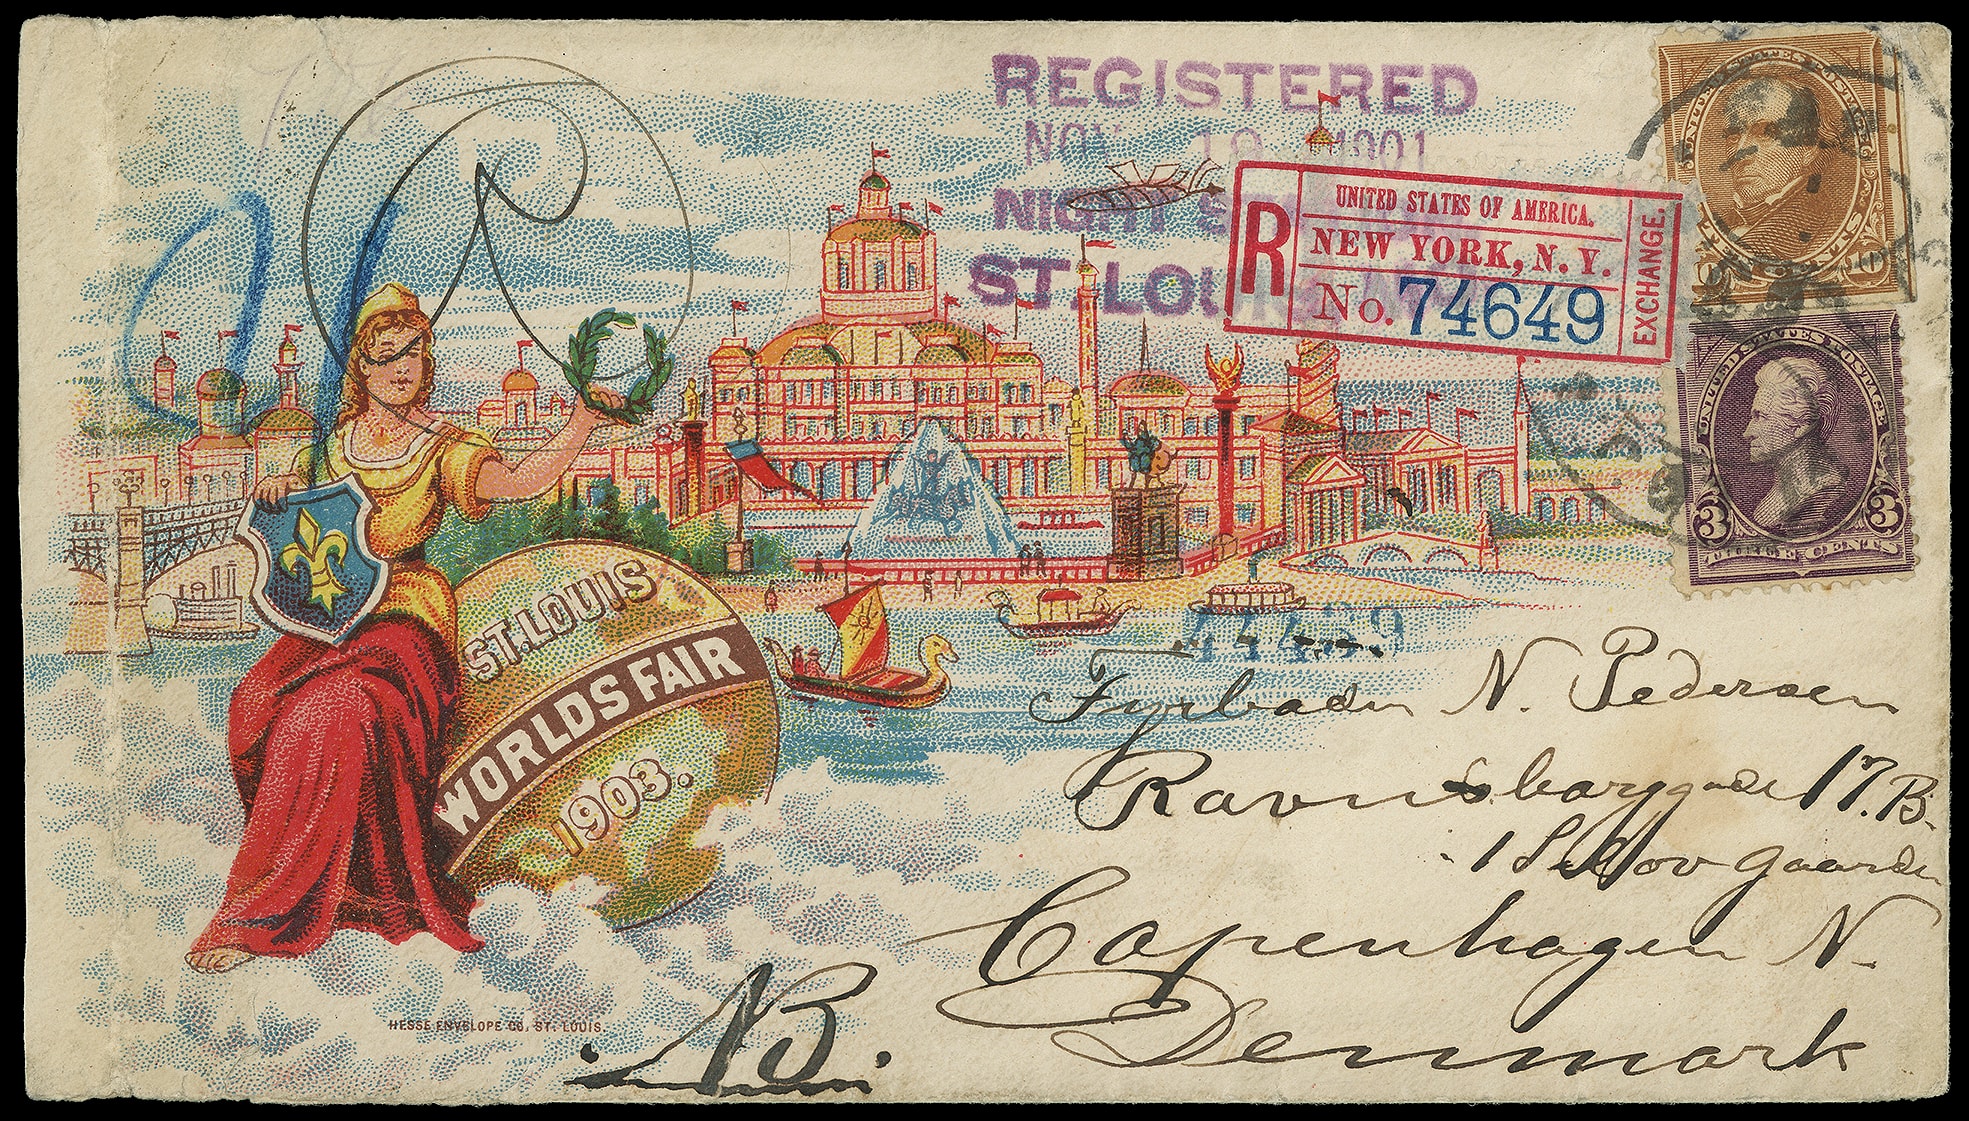 REGISTERED
NOV 19 1901
ST. LOU
R
UNITED STATES OF AMERICA.
NEW YORK, N. Y.
No. 74649
EXCHANGE.
UNITED STATES POSTAGE
10
UNITED STATES POSTAGE
3 3
THREE CENTS
91
ST. LOUIS
WORLDS FAIR
1903.
44469
Fyrbader N. Pedersen
Ravnsborggade 17. B.
Copenhagen N.
Denmark
NB.
HESSE ENVELOPE CO, ST. LOUIS.